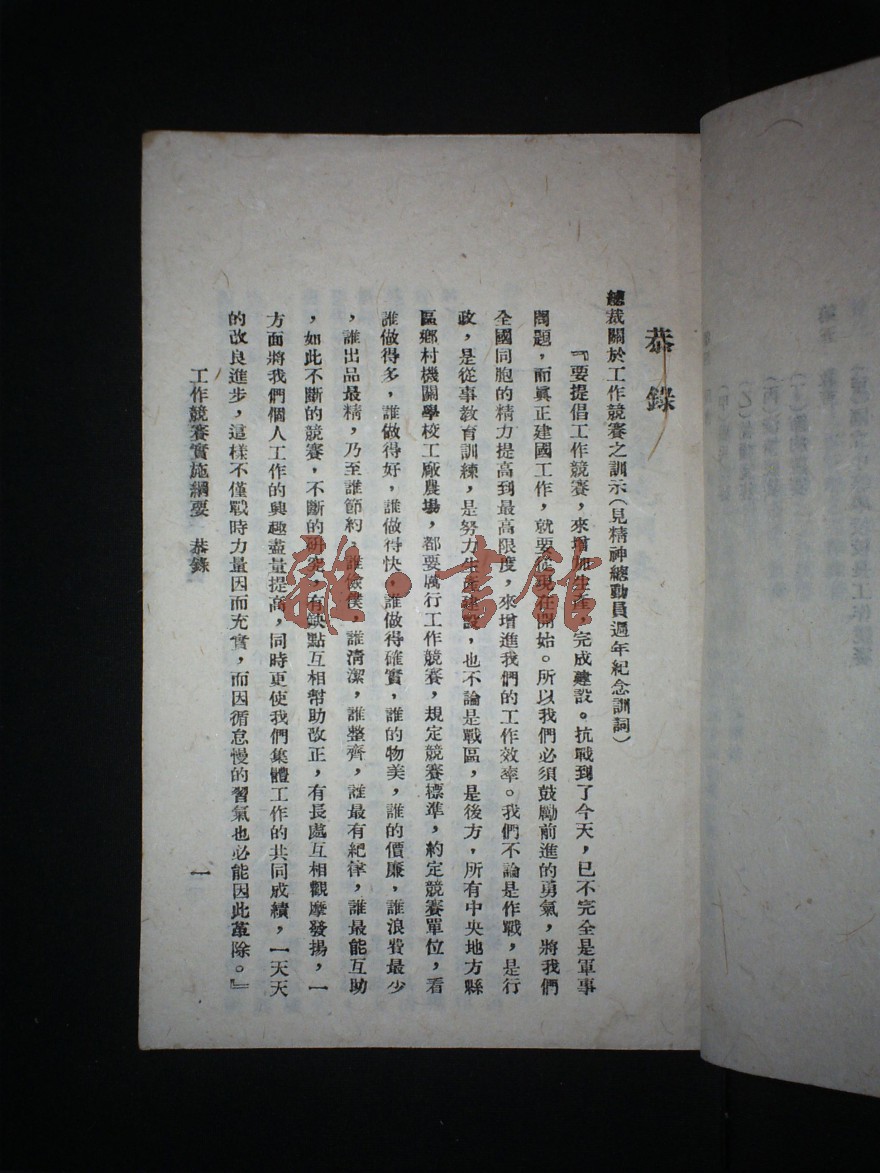 恭錄
總裁關於工作競賽之訓示（見精神總動員週年紀念訓詞）
『要提倡工作競賽，來增加生產，完成建設。抗戰到了今天，已不完全是軍事
問題，而眞正建國工作，就要從現在開始。所以我們必須鼓勵前進的勇氣，將我們
全國同胞的精力提高到最高限度，來增進我們的工作效率。我們不論是作戰，是行
政，是從事教育訓練，是努力生產建設，也不論是戰區，是後方，所有中央地方縣
區鄉村機關學校工廠農場，都要厲行工作競賽，規定競賽標準，約定競賽單位，看
誰做得多，誰做得好，誰做得快，誰做得確實，誰的物美，誰的價廉，誰浪費最少
，誰出品最精，乃至誰節約，誰儉樸，誰清潔，誰整齊，誰最有紀律，誰最能互助
，如此不斷的競賽，不斷的研究，有缺點互相幫助改正，有長處互相觀摩發揚，一
方面將我們個人工作的興趣盡量提高，同時更使我們集體工作的共同成績，一天天
的改良進步，這樣不僅戰時力量因而充實，而因循怠慢的習氣也必能因此革除。』
工作競賽實施綱要　恭錄
一
雜·書館